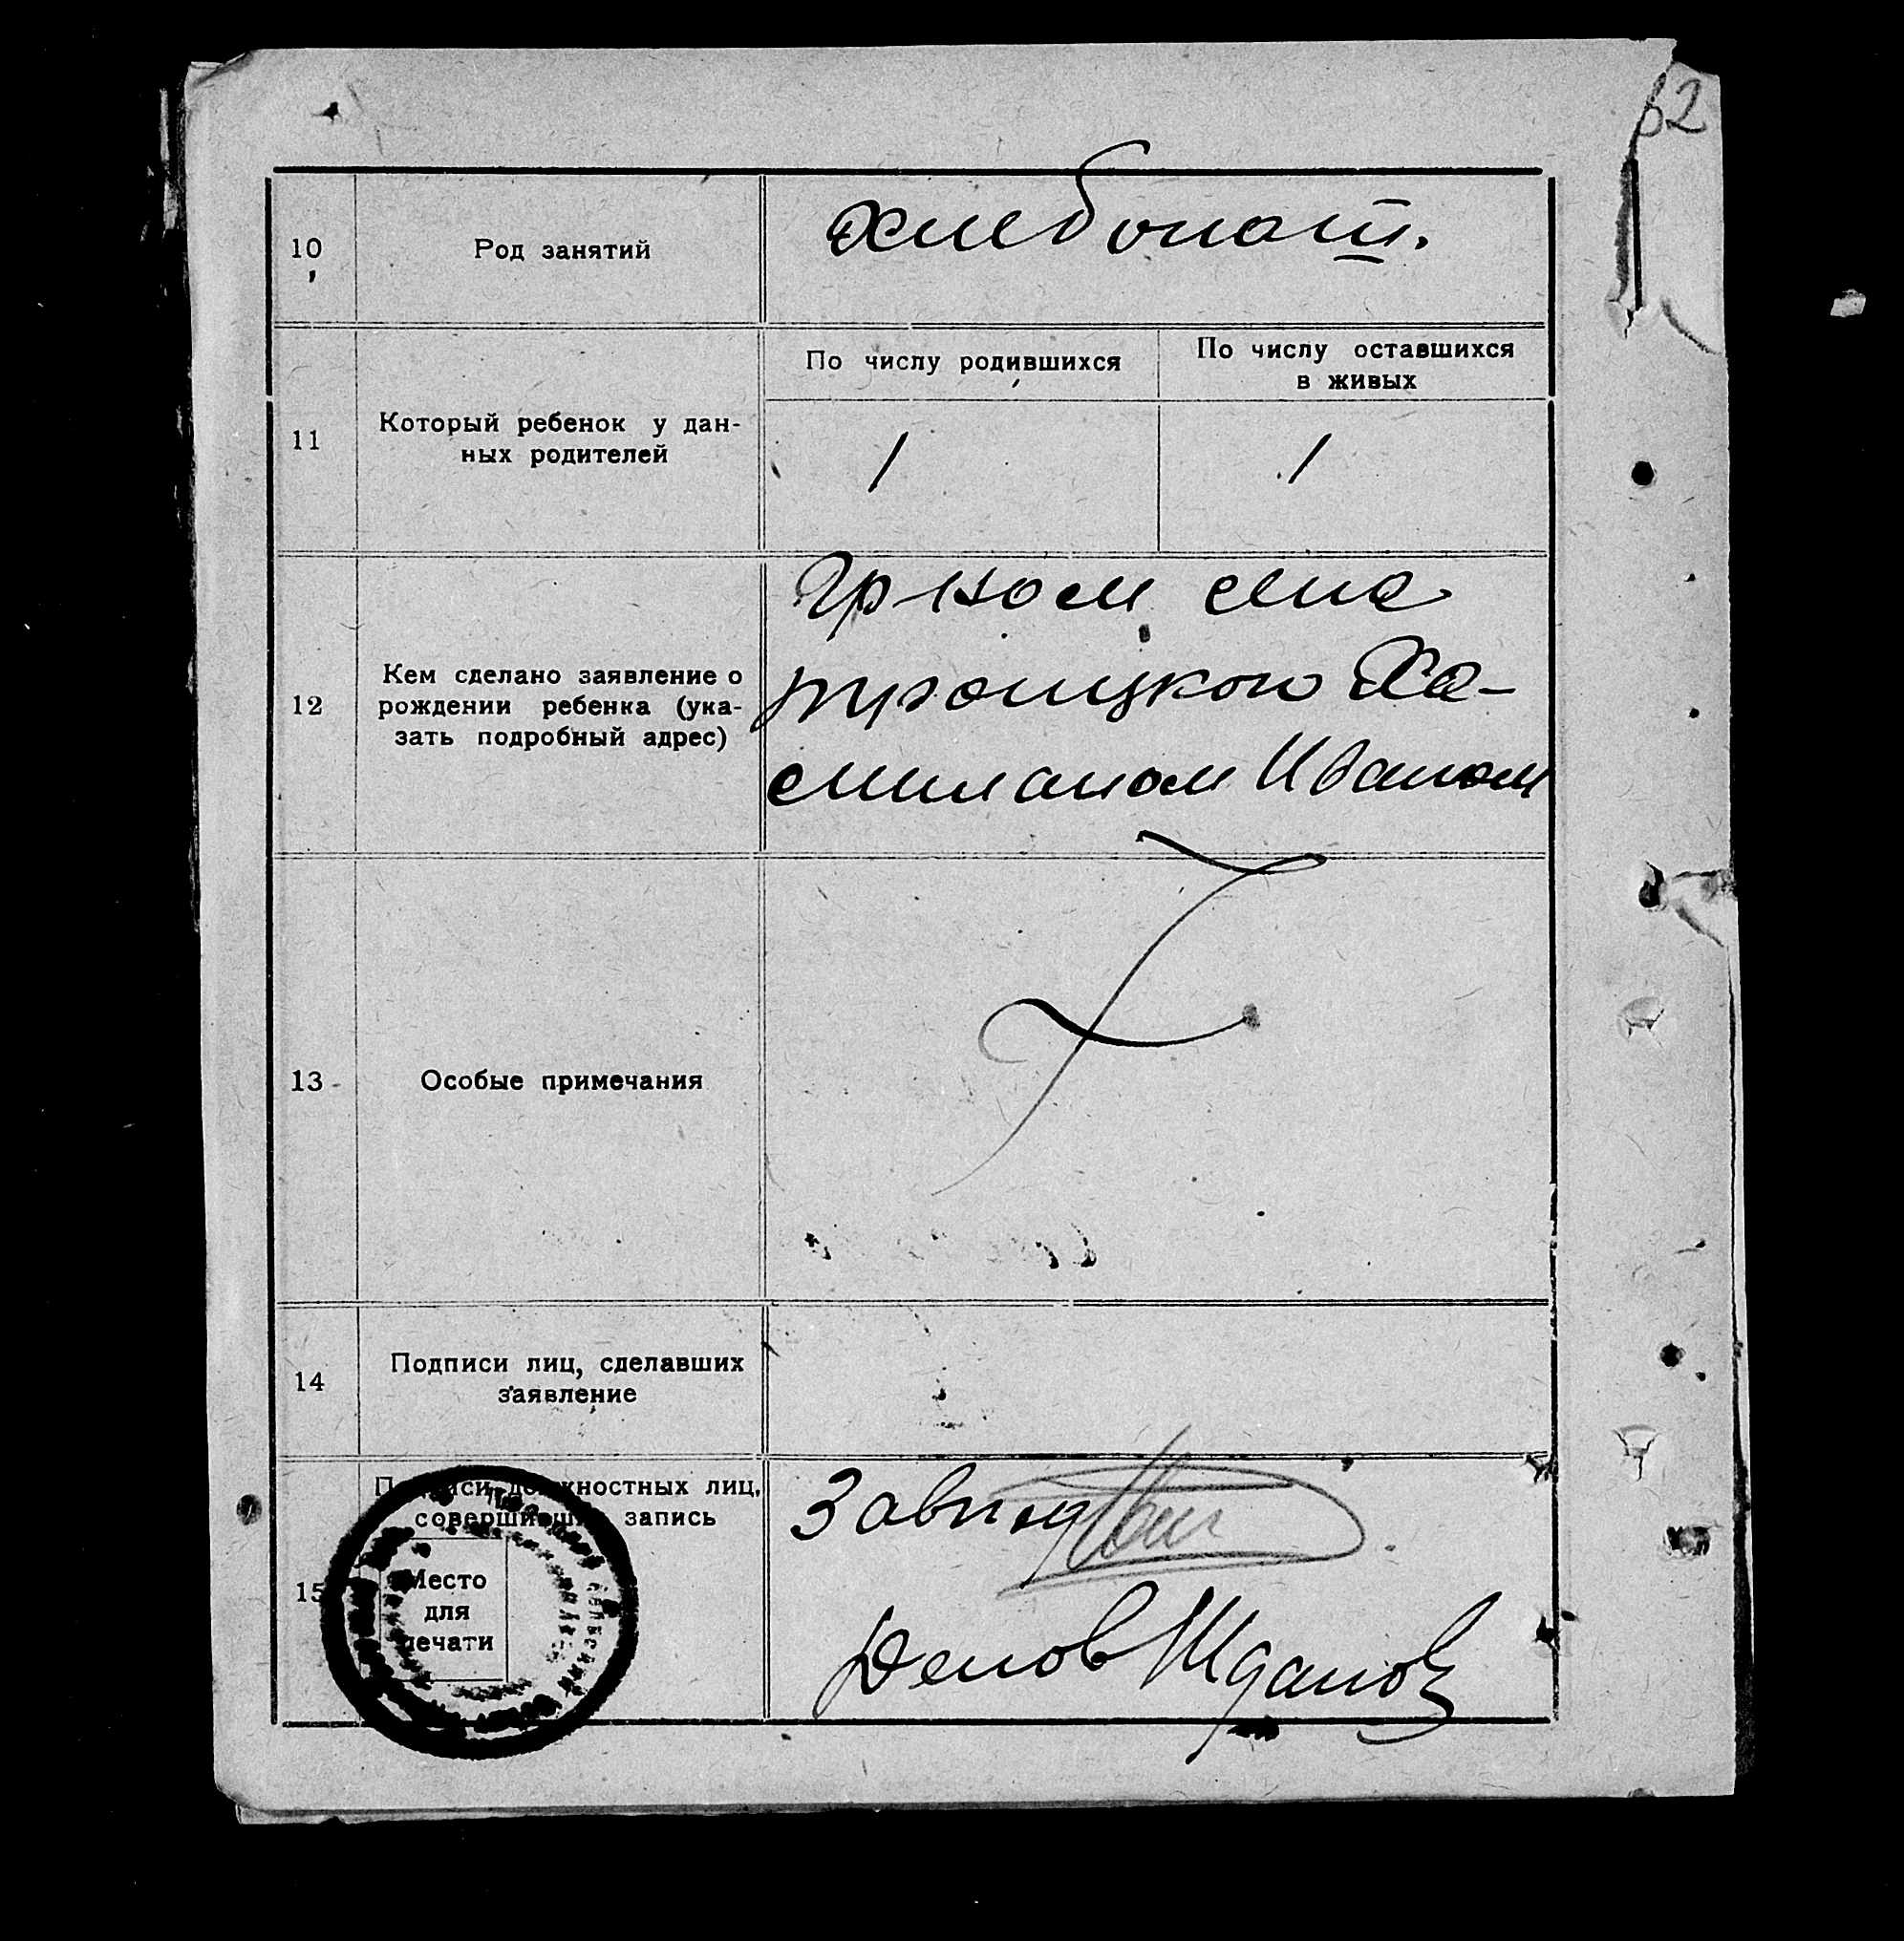 10
Род занятий
хлебопаш.
11
Который ребенок у дан-
ных родителей
По числу родившихся
По числу оставшихся
в живых
1
1
12
Кем сделано заявление о
рождении ребенка (ука-
зать подробный адрес)
Гр-ном села
Иваном
13
Особые примечания
14
Подписи лиц, сделавших
заявление
15
Подписи должностных лиц,
совершивших запись
Место
для
печати
Делов Жданов